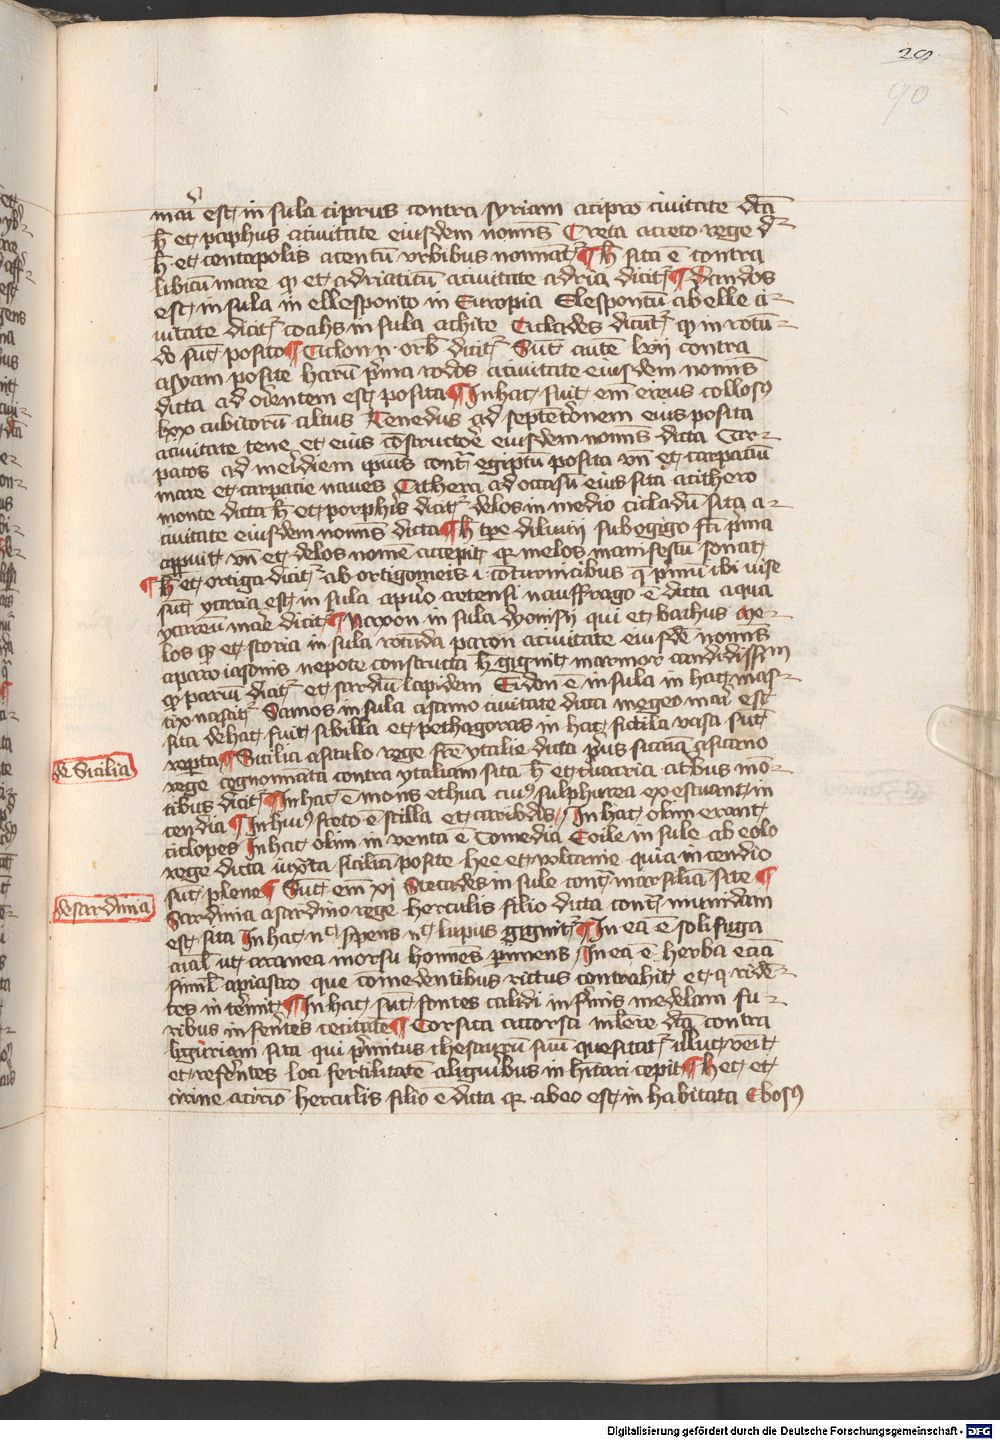 28
90
mari est in sula ciprus contra syriam a cipro ciuitate dcā
h̄ et paphus a ciuitate eiusdem nominis Creta a creto rege dr̄
h̄ et centapolis a centū vrbibus nominatr̄ ¶ h̄ sita ē contra
libicū mare qd et adriaticū a ciuitate adria dicitr̄ ¶ Dardos
est in sula in ellesponto in Europia Elespontū ab elle ci-
uitate dicitr̄ coahs in sula achite Ciclades dicūtr̄ qd in rotū-
do sūt posito ¶ Ciclon n orb̄ dicitr̄ Sūt autē lvii contra
asyam posite harū p̄ma rodos a ciuitate eiusdem nominis
dicta ad orientem est posita ¶ In hac fuit em̄ ereus collosꝰ
lxx cubitorū altus Tenedus ad septētrionem eius posita
a ciuitate tene et eius cōstructore eiusdem nominis dicta Car-
patos ad meridiem ipius cont̄ egiptū posita vn̄ et carpaciū
mare et carpacie naues Cithera ad occasū eius sita a cithero
monte dicta h̄ et porphiris dicitr̄ delos in medio cicladū sita a
ciuitate eiusdem nominis dicta ¶ h̄ tp̄e diluuii sub egigo fcī p̄ma
apparuit vn̄ et delos nomē accepit qr melos manifestū sonat
¶ h̄ et ortiga dicitr̄ ab ortigomeis i coturnicibus q̄ p̄mū ibi uise
sūt ycaria est in sula a puero cretensi nauffrago ē dicta a qua
ycareū mare dicitr̄ ¶ Naxon in sula dyonisii qui et bachus me-
los qd et storia in sula rotūda paron a ciuitate eiusdē nominis
a paro iasonis nepote constructa h̄ gignit marmor candidissim
qd pariū dicitr̄ et sardū lapidem Cidon ē in sula in hac mas-
tix nascitr̄ Samos in sula a samo ciuitate dicta in egeo mari est
sita de hac fuit sibilla et pethagoras in hac fictila vasa sūt
reperta ¶ Sicilia a siculo rege fr̄e ytalie dicta p̄us sicania a sicano
rege cognominata contra ytaliam sita h̄ et t̄nacria a tribus mō-
tibus dicitr̄ ¶ In hac ē mons ethna cuiꝰ sulphurea ex estuant in
cendia ¶ In huiꝰ freto ē scilla et caribdis In hac olim erant
ciclopes In hac olim in venta ē Comedia Eoile in sule ab eolo
rege dicta iuxta siciliā posite hee et volcanie quia in cendio
sūt plene ¶ Sūt em̄ xi Stecades in sule cont̄ marsilia site ¶
Sardinia a sardino rege herculis filio dicta cont̄ numidiam
est sita In hac nec serpens nec lupus gignitr̄ ¶ In ea ē solifuga
aīal ut aranea morsu homines perimens In ea ē herba eciā
simil̄ apiastro que comedentibus rictus contrahit et q̄ riden-
tes interimit ¶ In hac sūt fontes calidi in firmis medelam fu-
ribus in ferentes cecitatē ¶ Corsica a corsa muliere dcā contra
liguriam sita qui p̄mitus thesaurū suū quesitatr̄ illuc venit
et referentes loci fertilitatē aliquibus in habitari cepit ¶ Hec et
cirine a cirno herculis filio ē dicta qr ab eo est in habitata Ebosꝰ
de Sicilia
de sardinia
Digitalisierung gefördert durch die Deutsche Forschungsgemeinschaft - DFG